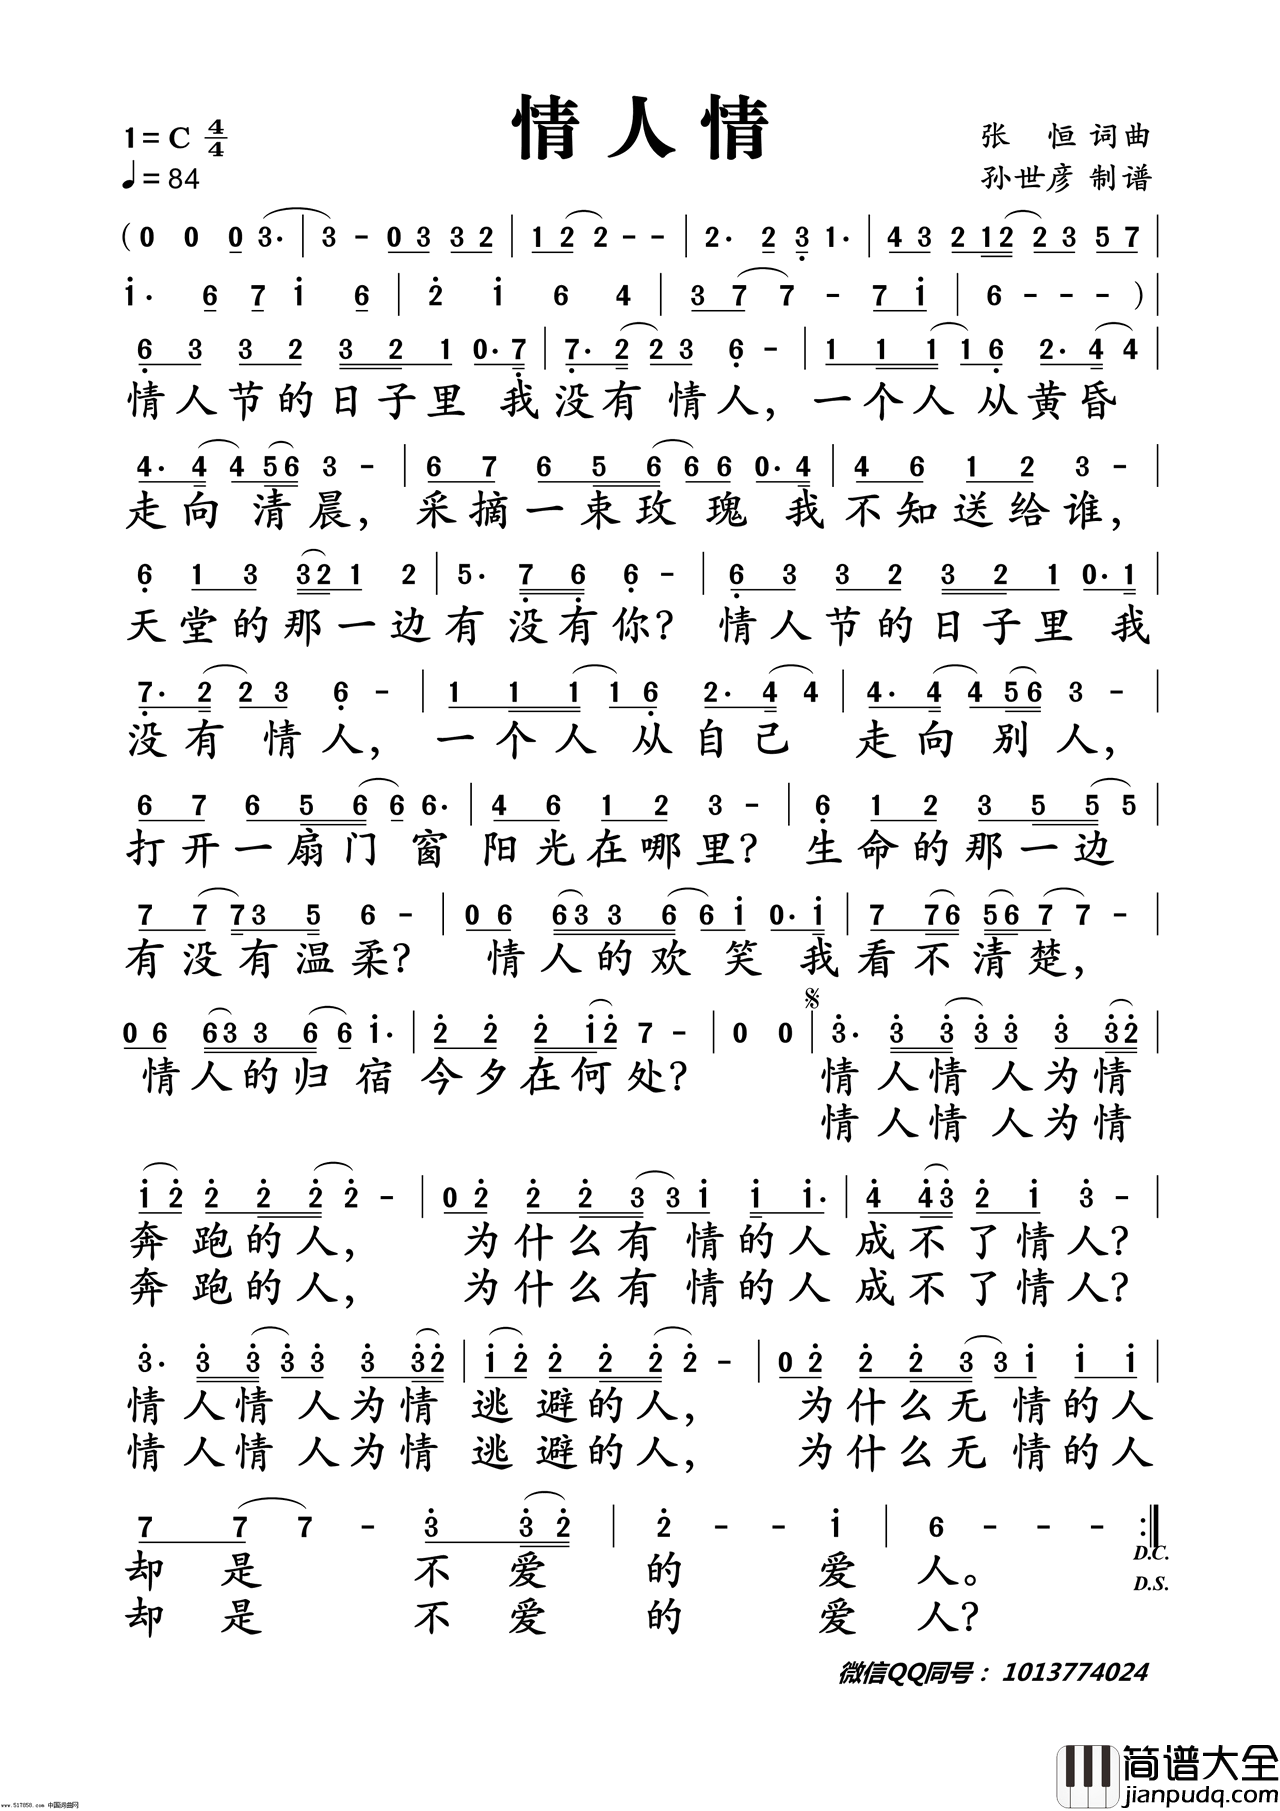 情人情
1=C 4/4
♩=84
张 恒 词曲
孙世彦 制谱
(0 0 0 3· | 3 - 0 3 3 2 | 1 2 2 - - | 2· 2 3 1· | 4 3 2 1 2 2 3 5 7 |
1· 6 7 1 6 | 2 1 6 4 | 3 7 7 - 7 1 | 6 - - - )|
6 3 3 2 3 2 1 0· 7 | 7· 2 2 3 6 - | 1 1 1 1 6 2· 4 4 |
情人节的日子里 我没有 情人，一个人 从黄昏
4· 4 4 5 6 3 - | 6 7 6 5 6 6 6 0· 4 | 4 6 1 2 3 - |
走向 清晨，采摘一束玫 瑰 我不知送给谁，
6 1 3 3 2 1 2 | 5· 7 6 6 - | 6 3 3 2 3 2 1 0· 1 |
天堂的那一边有 没有你？ 情人节的日子里 我
7· 2 2 3 6 - | 1 1 1 1 6 2· 4 4 | 4· 4 4 5 6 3 - |
没有 情人，一个人 从自己 走向 别人，
6 7 6 5 6 6 6· | 4 6 1 2 3 - | 6 1 2 3 5 5 5 |
打开一扇门 窗 阳光在哪里？ 生命的那一边
7 7 7 3 5 6 - | 0 6 6 3 3 6 6 1 0· 1 | 7 7 6 5 6 7 7 - |
有没有温柔？ 情人的欢 笑 我看不清楚，
0 6 6 3 3 6 6 1· | 2 2 2 1 2 7 - | 0 0 | 3· 3 3 3 3 3 3 2 |
情人的归 宿 今夕在何处？ 情人情 人为情
情人情 人为情
1 2 2 2 2 2 - | 0 2 2 2 3 3 1 1 1· | 4 4 3 2 1 3 - |
奔 跑的人， 为什么有 情的人 成不了情人？
奔 跑的人， 为什么有 情的人 成不了情人？
3· 3 3 3 3 3 3 2 | 1 2 2 2 2 2 - | 0 2 2 2 3 3 1 1 1 |
情人情 人为情 逃 避的人， 为什么无 情的人
情人情 人为情 逃 避的人， 为什么无 情的人
7 7 7 - 3 3 2 | 2 - - 1 | 6 - - - :|
D.C.
却 是 不 爱 的 爱 人。
D.S.
却 是 不 爱 的 爱 人？
微信QQ同号：1013774024
简谱大全
jianpudq.com
www.517858.com 中国词曲网